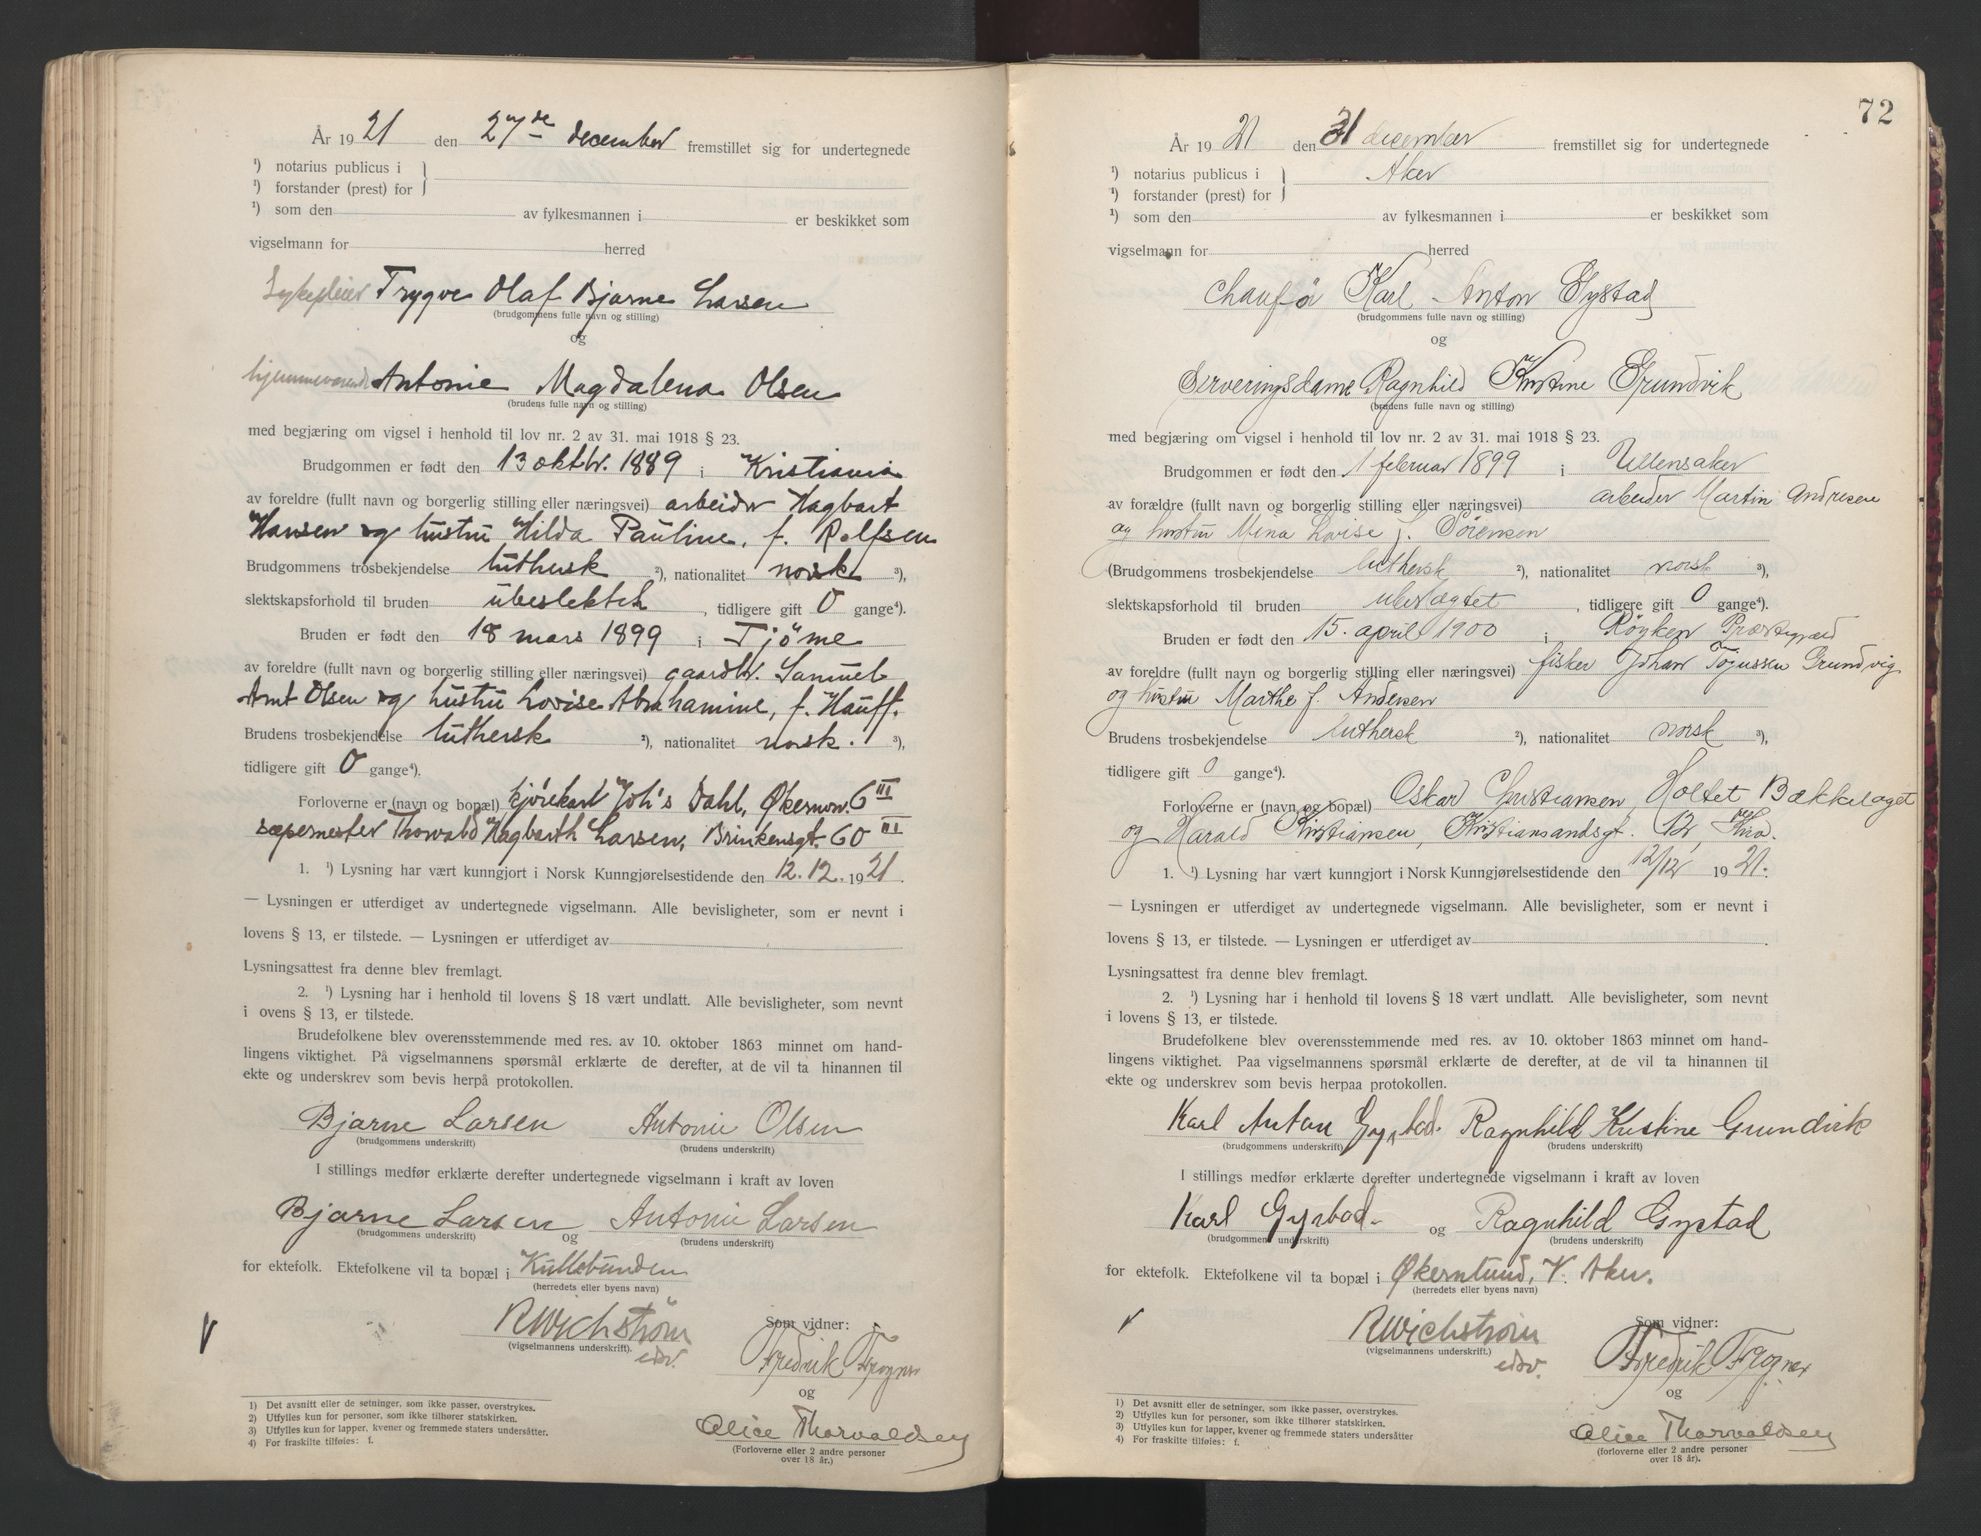 År 1921 den 27de december fremstillet sig for undertegnede
¹) notarius publicus i
¹) forstander (prest) for
¹) som den av fylkesmannen i er beskikket som
vigselmann for herred
Sykepleier Trygve Olaf Bjarne Larsen
(brudgommens fulle navn og stilling)
og
hjemmeværende Antonie Magdalena Olsen
(brudens fulle navn og stilling)
med begjæring om vigsel i henhold til lov nr. 2 av 31. mai 1918 § 23.
Brudgommen er født den 13 oktbr. 1889 i Kristiania
av foreldre (fullt navn og borgerlig stilling eller næringsvei) arbeider Hagbart
Hansen og hustru Hilda Pauline, f. Rolfsen
Brudgommens trosbekjendelse luthersk ²), nationalitet norsk ³),
slektskapsforhold til bruden ubeslektet, tidligere gift 0 gange⁴).
Bruden er født den 18 mars 1899 i Tjöme
av foreldre (fullt navn og borgerlig stilling eller næringsvei) gaardbr. Samuel
Amt Olsen og hustru Lovise Abrahamine, f. Hauff.
Brudens trosbekjendelse luthersk ²), nationalitet norsk. ³),
tidligere gift 0 gange⁴).
Forloverne er (navn og bopæl) kjørekarl Joh's Dahl, Økernv. 6 III
sæpemester Thorvald Hagbarth Larsen, Brinkensgt. 60 III
1. ¹) Lysning har vært kunngjort i Norsk Kunngjørelsestidende den 12. 12. 1921.
— Lysningen er utferdiget av undertegnede vigselmann. Alle bevisligheter, som er nevnt i
lovens § 13, er tilstede. — Lysningen er utferdiget av
Lysningsattest fra denne blev fremlagt.
2. ¹) Lysning har i henhold til lovens § 18 vært undlatt. Alle bevisligheter, som nevnt
i ovens § 13, er tilstede.
Brudefolkene blev overensstemmende med res. av 10. oktober 1863 minnet om hand-
lingens viktighet. På vigselmannens spørsmål erklærte de derefter, at de vil ta hinannen til
ekte og underskrev som bevis herpå protokollen.
Bjarne Larsen Antonie Olsen
(brudgommens underskrift) (brudens underskrift)
I stillings medfør erklærte derefter undertegnede vigselmann i kraft av loven
Bjarne Larsen og Antonie Larsen
(brudgommens underskrift) (brudens underskrift)
for ektefolk. Ektefolkene vil ta bopæl i Kullebunden
(herredets eller byens navn)
RWichstrøm
(vigselmannens underskrift).
edsv.
Som vidner:
Fredrik Frogner
og
Alice Thorvaldsen
(Forloverne eller 2 andre personer
over 18 år.)
1) Det avsnitt eller de setninger, som ikke passer, overstrykes.
2) Utfylles kun for personer, som ikke tilhører statskirken.
3) Utfylles kun for lapper, kvener og fremmede staters undersåtter.
4) For fraskilte tilføies: f.
72
År 1921 den 31 december fremstillet sig for undertegnede
¹) notarius publicus i Aker
¹) forstander (prest) for
¹) som den av fylkesmannen i er beskikket som
vigselmann for herred
Chaufør Karl Anton Gystad
(brudgommens fulle navn og stilling)
og
Serveringsdame Ragnhild Kristine Grundvik
(brudens fulle navn og stilling)
med begjæring om vigsel i henhold til lov nr. 2 av 31. mai 1918 § 23.
Brudgommen er født den 1 februar 1899 i Ullensaker
av forældre (fullt navn og borgerlig stilling eller næringsvei) arbeider Martin Andresen
og hustru Mina Lovise f. Sörensen
(Brudgommens trosbekjendelse luthersk ²), nationalitet norsk ³),
slektskapsforhold til bruden ubeslægtet, tidligere gift 0 gange⁴).
Bruden er født den 15. april 1900 i Røyken Præstegjæld
av foreldre (fullt navn og borgerlig stilling eller næringsvei) fisker Johan Tojussen Grundvig
og hustru Marthe f. Andersen
Brudens trosbekjendelse luthersk ²), nationalitet norsk ³),
tidligere gift 0 gange⁴).
Forloverne er (navn og bopæl) Oskar Christiansen Holtet Bækkelaget
og Harald Kristiansen, Kristiansandsgt. 12, Kra.
1. ¹) Lysning har vært kunngjort i Norsk Kunngjørelsestidende den 12/12 1921.
— Lysningen er utferdiget av undertegnede vigselmann. Alle bevisligheter, som er nevnt i
lovens § 13, er tilstede. — Lysningen er utferdiget av
Lysningsattest fra denne blev fremlagt.
2. ¹) Lysning har i henhold til lovens § 18 vært undlatt. Alle bevisligheter, som nevnt
i lovens § 13, er tilstede.
Brudefolkene blev overensstemmende med res. av 10. oktober 1863 minnet om hand-
lingens viktighet. Paa vigselmannens spørsmål erklærte de derefter, at de vil ta hinannen til
ekte og underskrev som bevis herpaa protokollen.
Karl Anton Gystad. Ragnhild Kristine Grundvik
(brudgommens underskrift) (brudens underskrift)
I stillings medfør erklærte derefter undertegnede vigselmann i kraft av loven
Karl Gystad. og Ragnhild Gystad
(brudgommen underskrift) (brudens underskrift)
for ektefolk. Ektefolkene vil ta bopæl i Økernlund, V. Aker.
(herredets eller byens navn)
RWichstrøm
(vigselmannens underskrift.)
edsv.
Som vidner:
Fredrik Frogner
og
Alice Thorvaldsen
(forloverne eller 2 andre personer
over 18 år).
1) Det avsnitt eller de setninger, som ikke passer, overstrykes.
2) Utfylles kun for personer, som ikke tilhører statskirken.
3) Utfylles kun for lapper, kvener og fremmede staters undersåtter
4) For fraskilte tilføies: f.